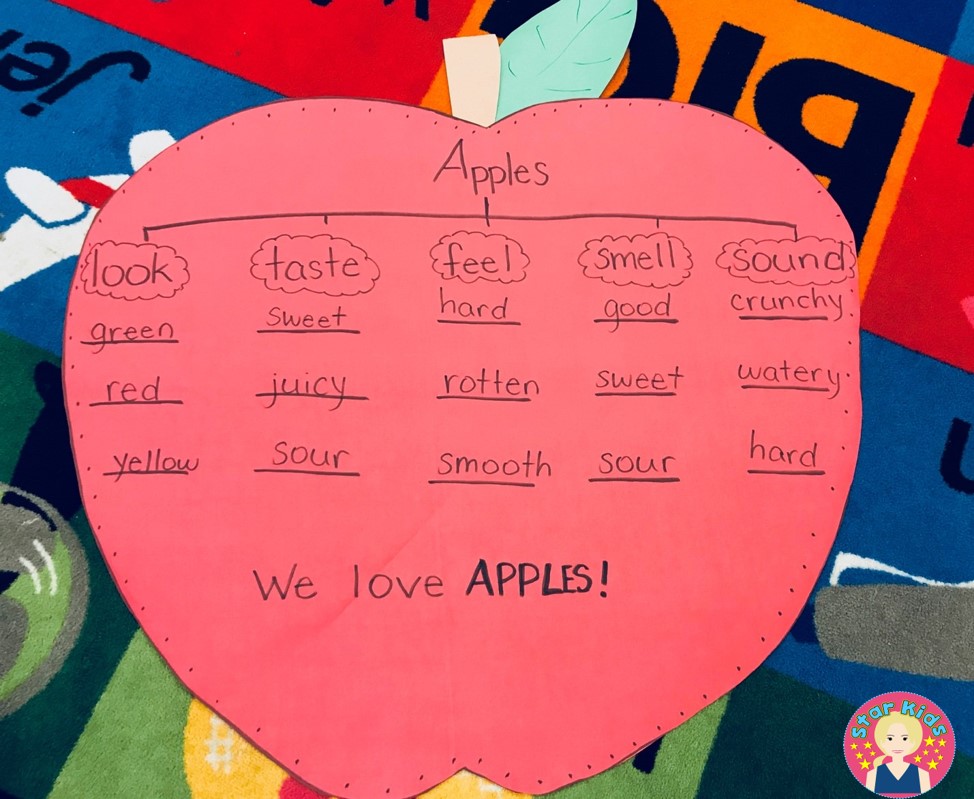 Apples
look taste feel smell sound
green sweet hard good crunchy
red juicy rotten sweet watery
yellow sour smooth sour hard
We love APPLES!
Star Kids